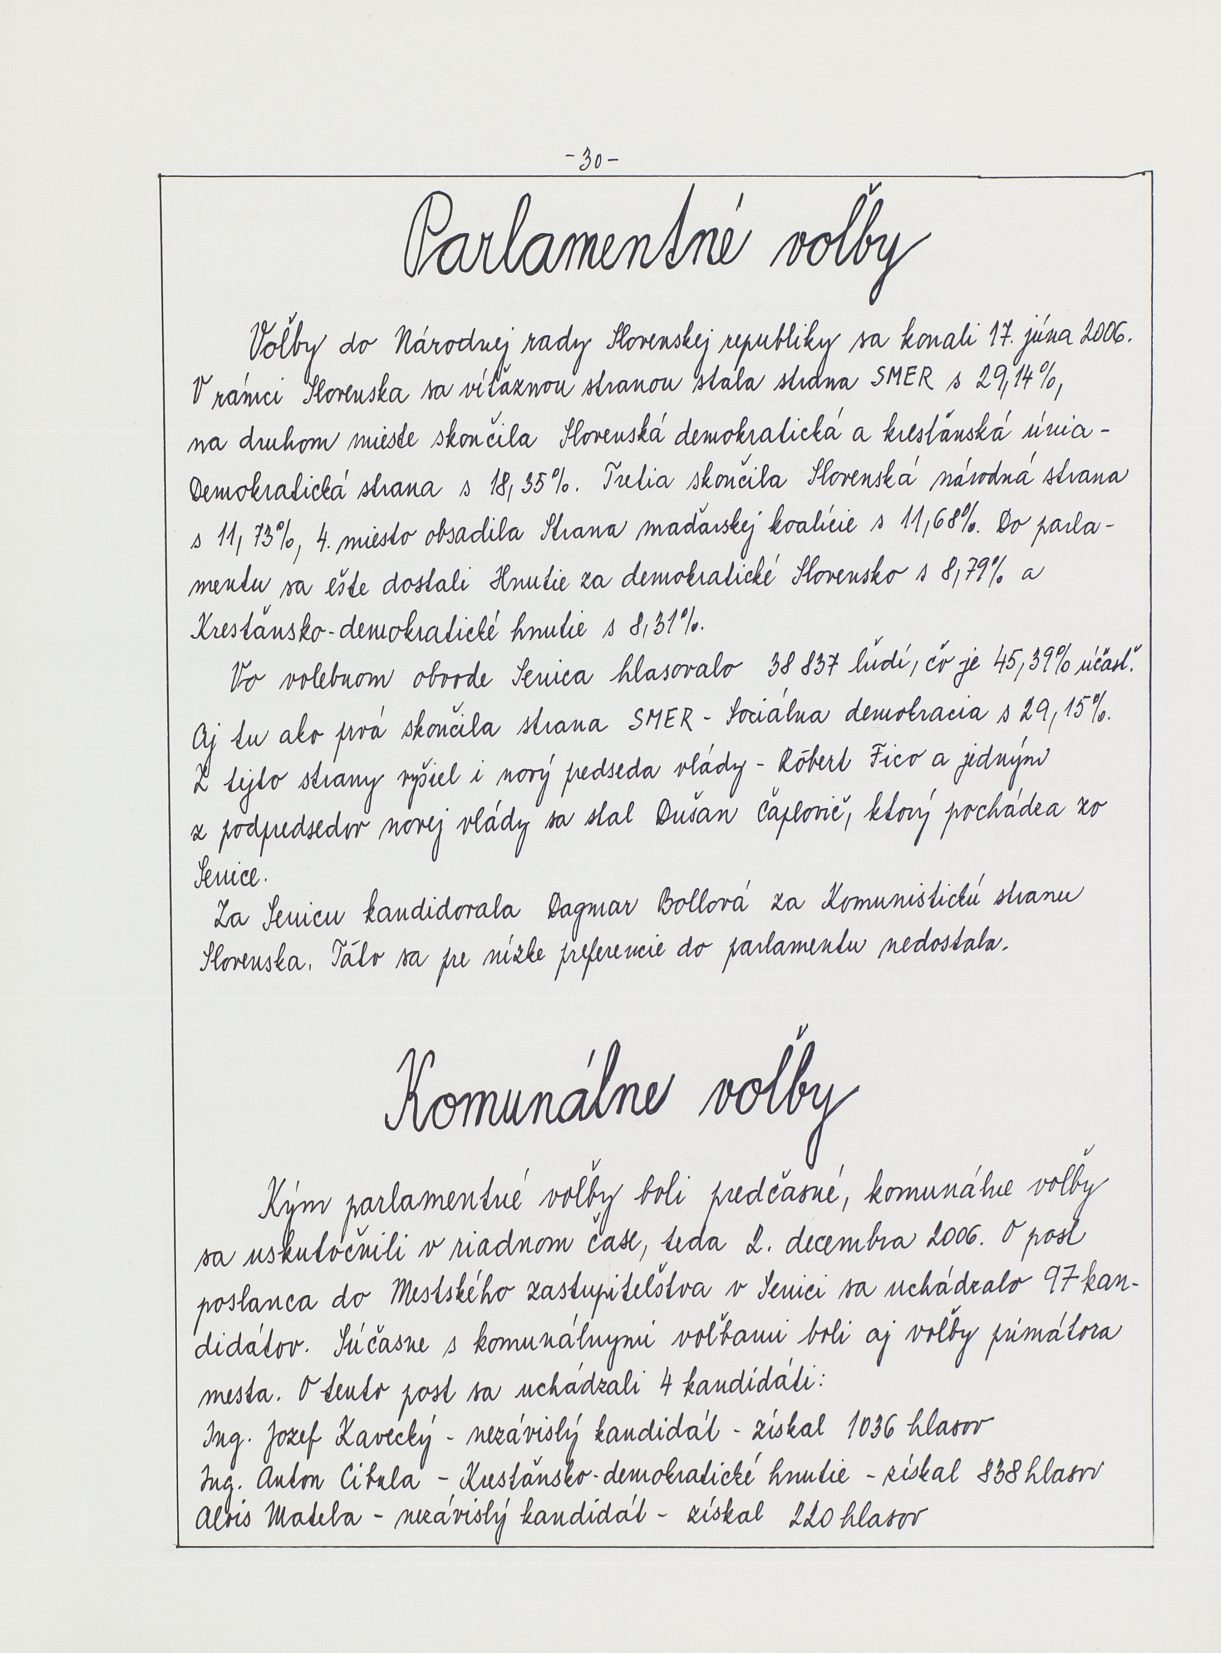 -30-
Parlamentné voľby
Voľby do Národnej rady Slovenskej republiky sa konali 17. júna 2006.
V rámci Slovenska sa víťaznou stranou stala strana SMER s 29,14%,
na druhom mieste skončila Slovenská demokratická a kresťanská únia -
Demokratická strana s 18,35%. Tretia skončila Slovenská národná strana
s 11,73%, 4. miesto obsadila Strana maďarskej koalície s 11,68%. Do parla-
mentu sa ešte dostali Hnutie za demokratické Slovensko s 8,79% a
Kresťansko-demokratické hnutie s 8,31%.
Vo volebnom obvode Senica hlasovalo 38 837 ľudí, čo je 45,39% účasť.
Aj tu ako prvá skončila strana SMER - Sociálna demokracia s 29,15%.
Z tejto strany vyšiel i nový predseda vlády - Róbert Fico a jedným
z podpredsedov novej vlády sa stal Dušan Čaplovič, ktorý pochádza zo
Senice.
Za Senicu kandidovala Dagmar Bollová za Komunistickú stranu
Slovenska. Táto sa pre nízke preferencie do parlamentu nedostala.
Komunálne voľby
Kým parlamentné voľby boli predčasné, komunálne voľby
sa uskutočnili v riadnom čase, teda 2. decembra 2006. O post
poslanca do Mestského zastupiteľstva v Senici sa uchádzalo 97 kan-
didátov. Súčasne s komunálnymi voľbami boli aj voľby primátora
mesta. O tento post sa uchádzali 4 kandidáti:
Ing. Jozef Kavecký - nezávislý kandidát - získal 1036 hlasov
Ing. Anton Cibula - Kresťansko-demokratické hnutie - získal 838 hlasov
Alois Mateba - nezávislý kandidát - získal 220 hlasov